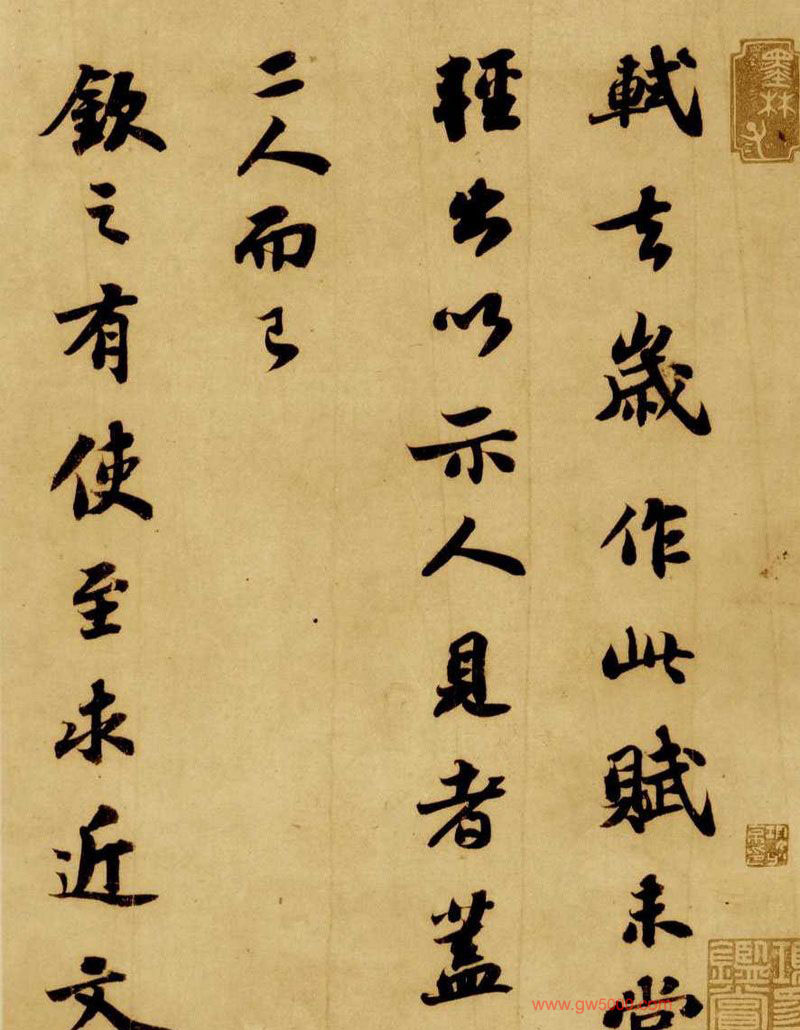 軾去歲作此賦未嘗
輕出以示人見者蓋
二人而已
欽之有使至求近文
墨林
www.gw5000.com